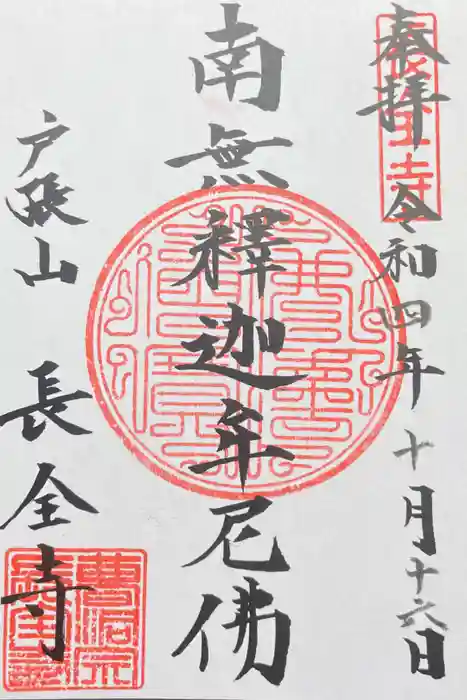 奉拝 令和四年十月十六日
南無釋迦牟尼佛
戸張山 長全寺
長全寺